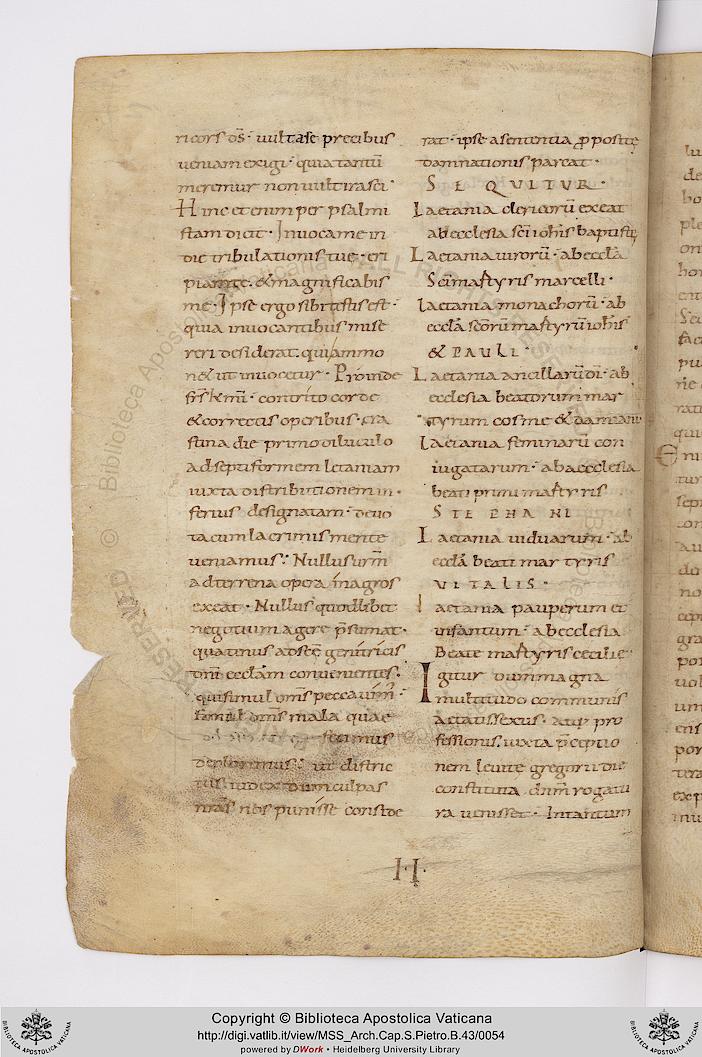 ricors ds̄. vult a se precibus
veniam exigi. quia tantū
meremur non vult irasci.
Hinc et enim per psalmi
stam dicit. Invoca me in
die tribulationis tue. eri
piam te. & magnificabis
me. Ipse ergo sibi testis est.
quia invocantibus mise
reri desiderat. qui ammo
n& ut invocetur. Proinde
frs̄ kmī. contrito corde
& correctis operibus. cra
stina die primo diluculo
ad septiformem letaniam
iuxta distributionem in
ferius designatam. devo
ta cum lacrimis mente
veniamus. Nullus urm̄
ad terrena opera in agros
exeat. Nullus quodlibet
negotium agere p̄sumat.
quatinus ad scē genitricis
dnī eccl̄am convenientes.
qui simul oms̄ peccavim̄.
simul oms̄ mala quae
fecimus
deploremus. ut distric
tus iudex dum culpas
nras̄ nos punisse conside
rat. ipse a sententia ꝓpositę
damnationis parcat.
SEQUITUR.
Laetania clericorū exeat
ab ecclesia scī iohis̄ baptistę
Laetania virorū. ab eccla̅
Sci martyris marcelli.
Laetania monachorū. ab
eccla̅ scōrū martyrū iohis̄
& PAULI.
Laetania ancillarū dī. ab
ecclesia beatorum mar
tyrum cosme & damiani
Laetania feminarū con
iugatarum. ab aecclesia
beati primi martyris
STEPHANI
Laetania viduarum. ab
eccla̅ beati martyris
VITALIS.
Laetania pauperum et
infantum. ab ecclesia
Beate martyris cecilie
Igitur dum magna
multitudo communis
aetatis sexus. atq; pro
fessionis. iuxta p̄ceptio
nem levite gregorii die
constituta dnm̄ rogatu
ra venisset. In tantum
II.
Copyright © Biblioteca Apostolica Vaticana
http://digi.vatlib.it/view/MSS_Arch.Cap.S.Pietro.B.43/0054
powered by DWork • Heidelberg University Library